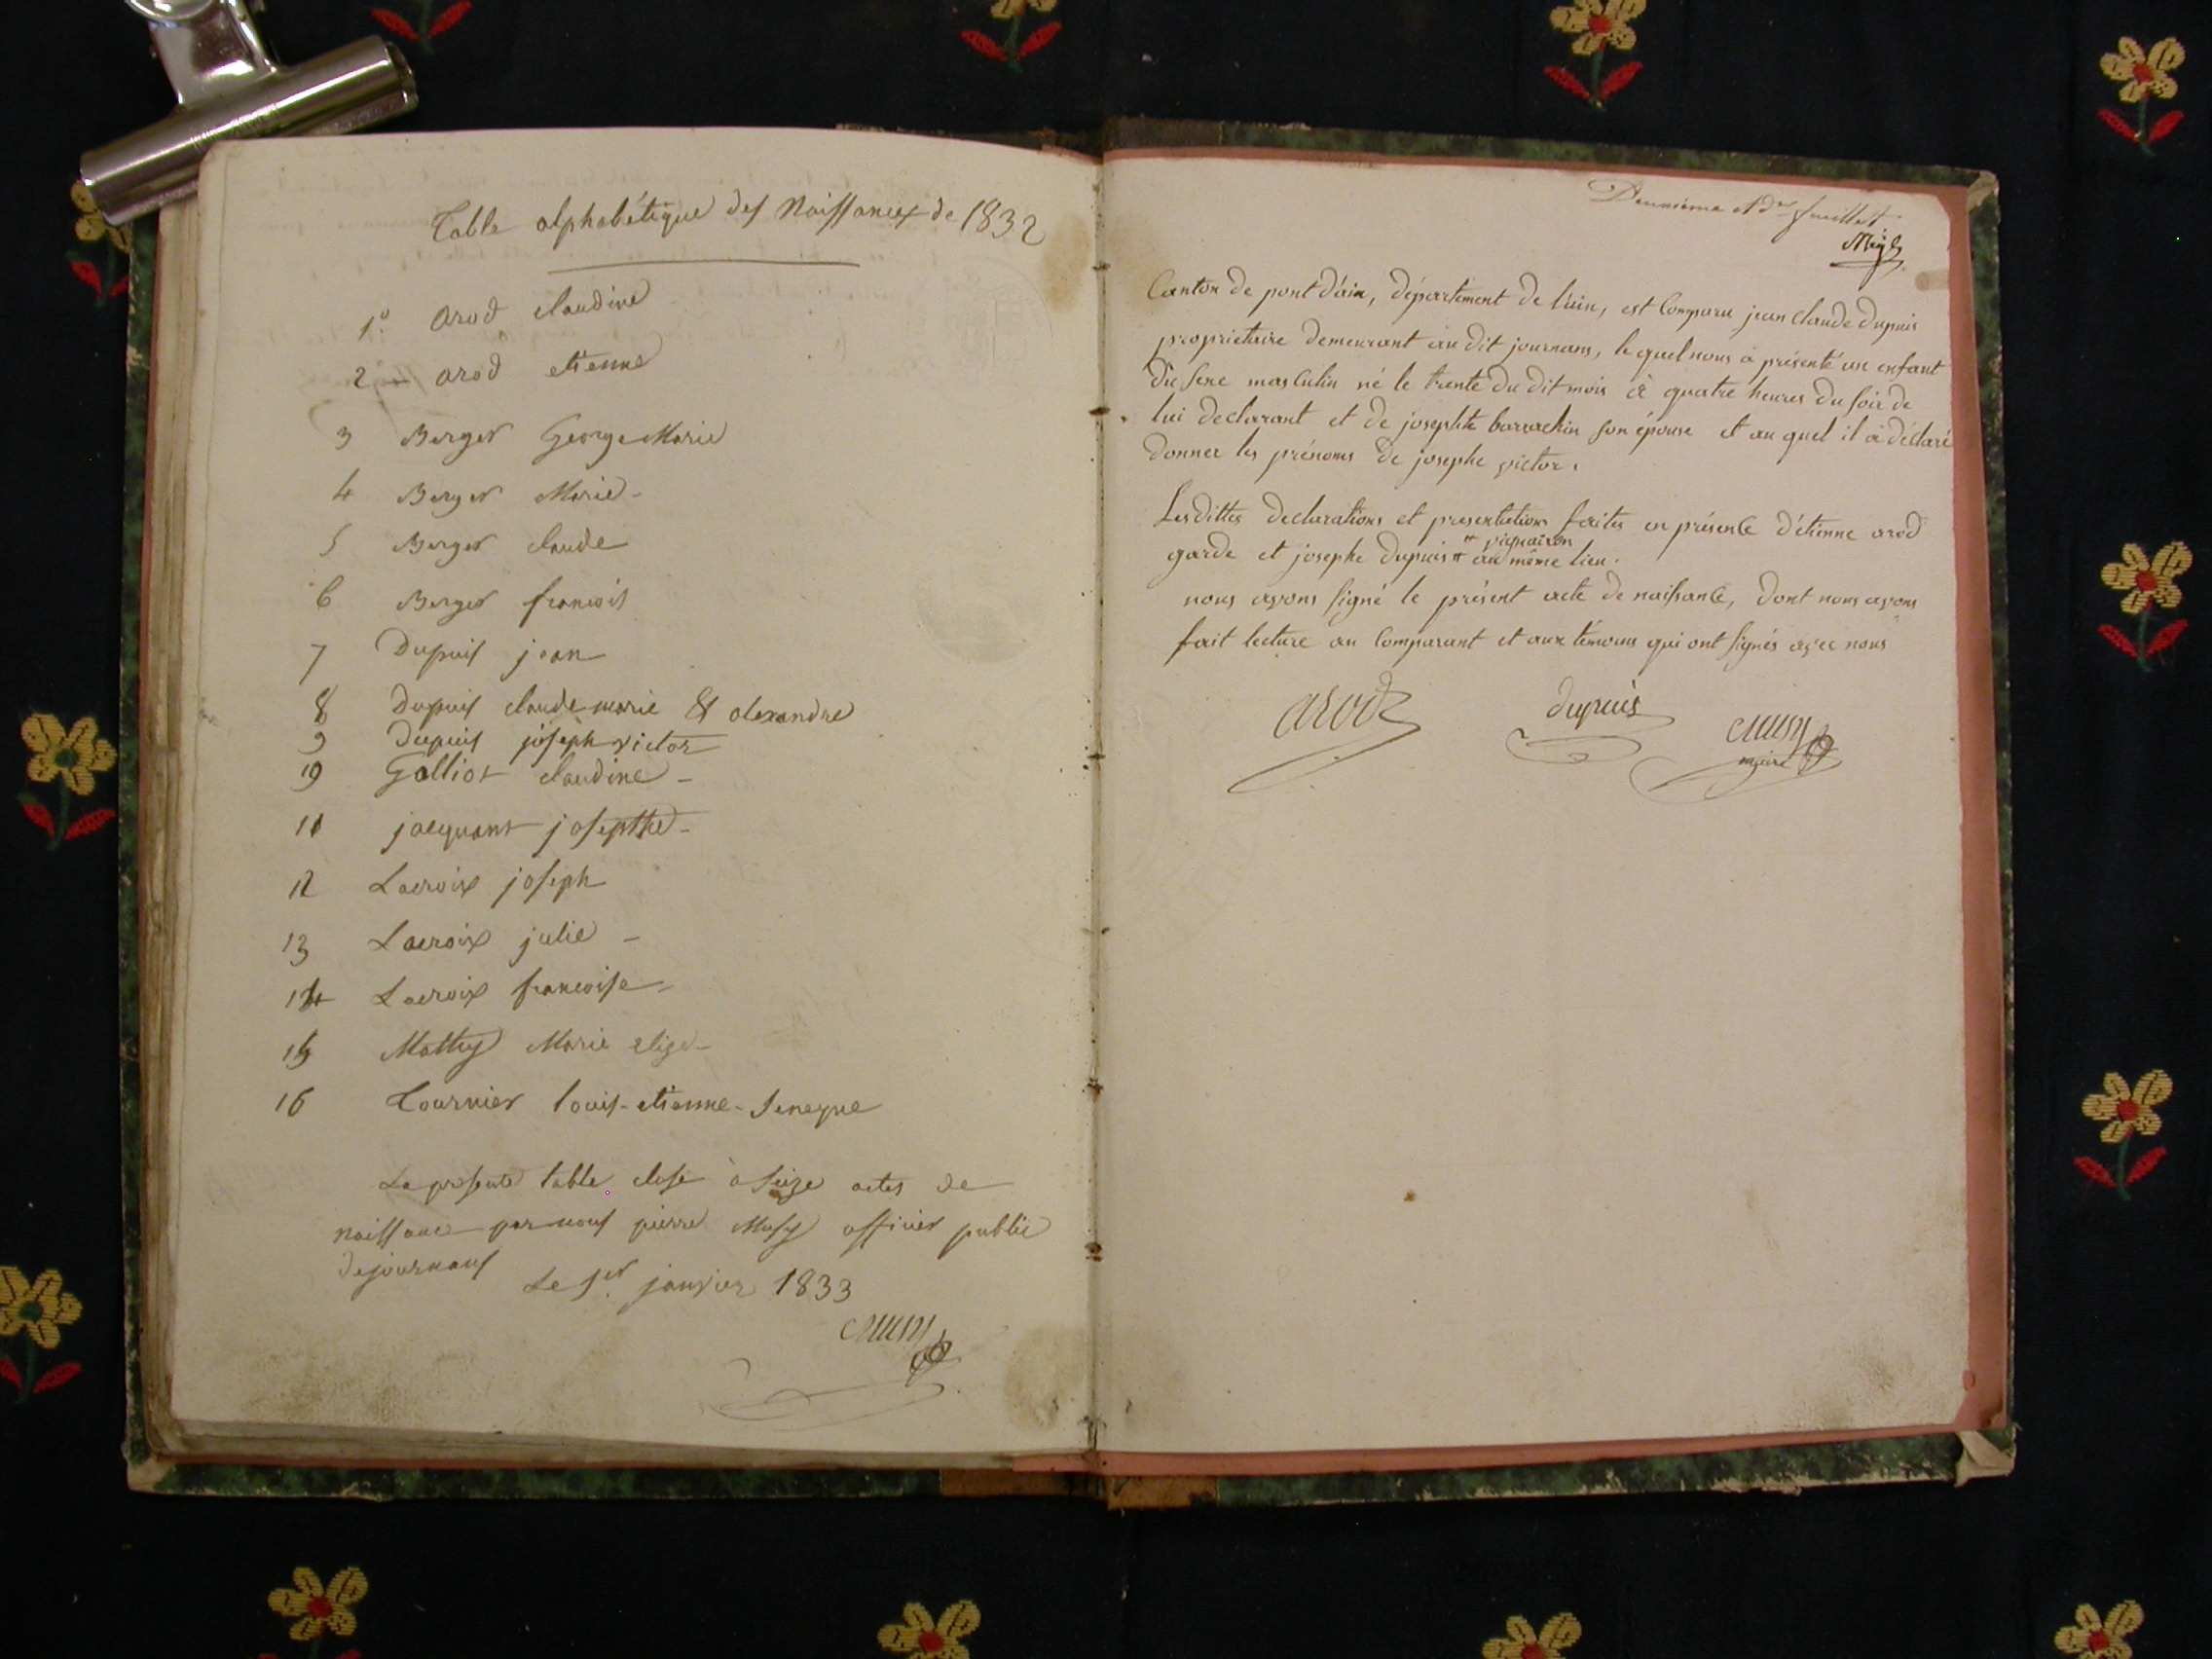 Table alphabétique des Naissances de 1832
1º. arod claudine
2 - arod etienne
3 Berger George Marie
4 Berger Marie -
5 Berger claude
6 Berger francois
7 Dupuis jean
8 Dupuis claude marie & alexandre
9 Dupuis joseph victor
10 Golliot claudine -
11 jacquant josepthe -
12 Lacroix joseph
13 Lacroix julie -
14 Lacroix francoise -
15 Mathy Marie elize -
16 Tournier louis-etienne-Seneque
La presente table close à Seize actes de
naissance par nous pierre Musy officier public
de journans
Le 1er janvier 1833
Musy
Deuxieme et der feuillet
Canton de pont d'ain, département de l'ain, est Comparu jean claude dupuis
proprietaire demeurant au dit journans, le quel nous à présenté un enfant
du sexe masculin né le trente du dit mois à quatre heures du soir de
lui declarant et de josephte barrachin son épouse et au quel il à déclaré
donner les prénoms de josephe victor.
Les dittes declarations et presentations faites en présence d'étienne arod
garde et josephe dupuis # au même lieu.
# vigneron
nous avons signé le présent acte de naissance, dont nous avons
fait lecture au Comparant et aux témoins qui ont signés avec nous
arod
dupuis
Musy
maire